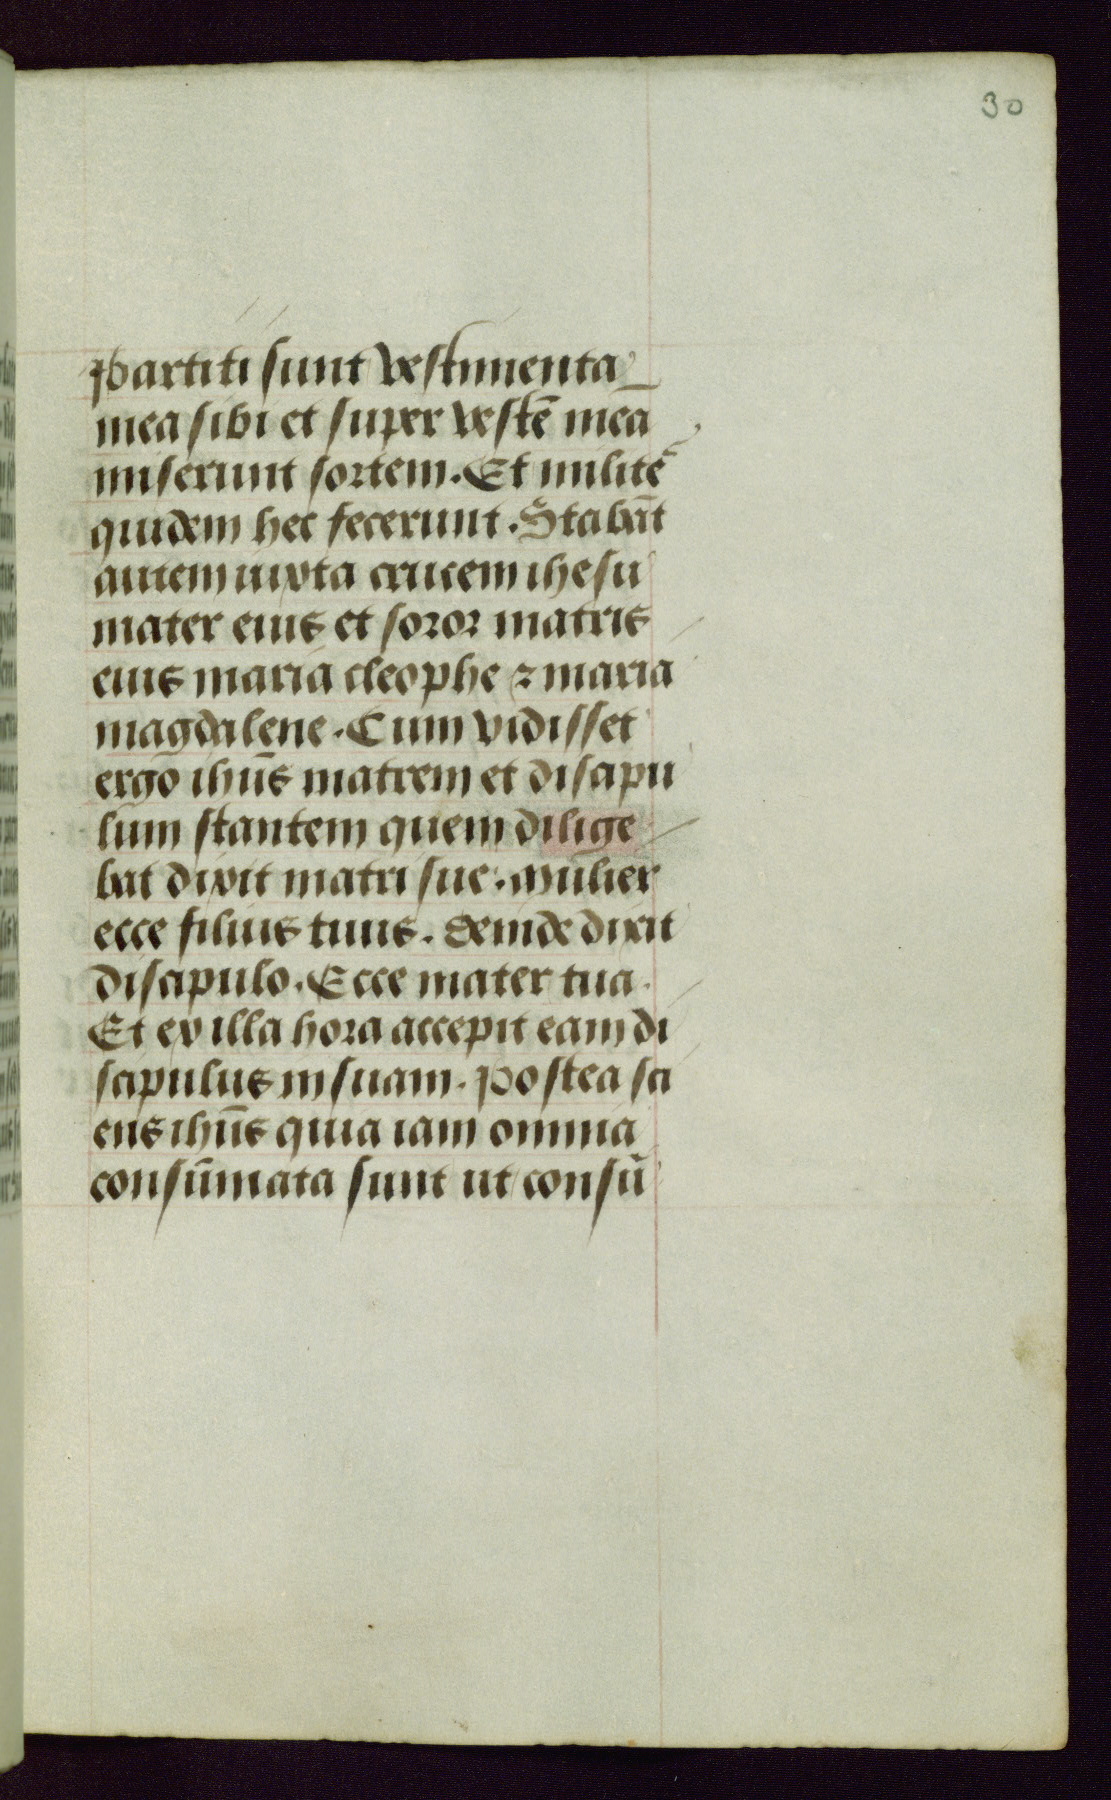 30
Partiti sunt vestimenta
mea sibi et super vestē mea
miserunt sortem. Et militē
quidem hec fecerunt. Stabāt
autem iuxta crucem ihesu
mater eius et soror matris
eius maria cleophe ⁊ maria
magdalene. Cum vidisset
ergo ihūs matrem et discipu
lum stantem quem dilige
bat dixit matri sue. Mulier
ecce filius tuus. Deinde dixit
discipulo. Ecce mater tua.
Et ex illa hora accepit eam di
scipulus in suam. Postea sci
ens ihūs quia iam omnia
consūmata sunt ut consū